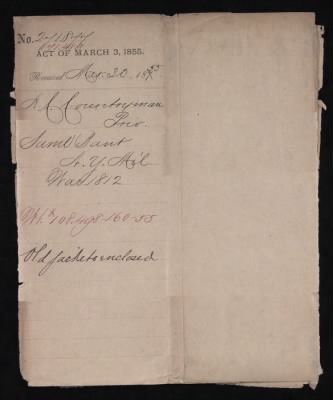 No.
ACT OF MARCH 3, 1855.
Received Mar. 20, 1855
D C Countryman
Priv.
Saml Gant
N. Y. Mil
War 1812
Wt. 108.498-160-55
Old jackets enclosed